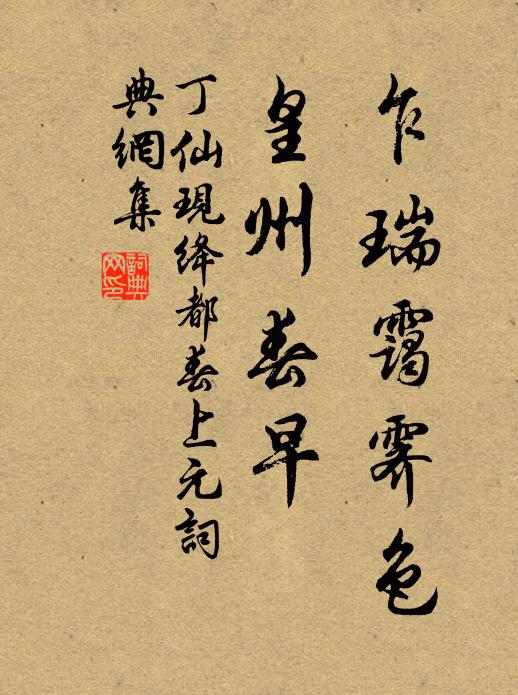 乍瑞靄霽色
皇州春早
丁仙現絳都春上元詞
典網集
詞典
网印